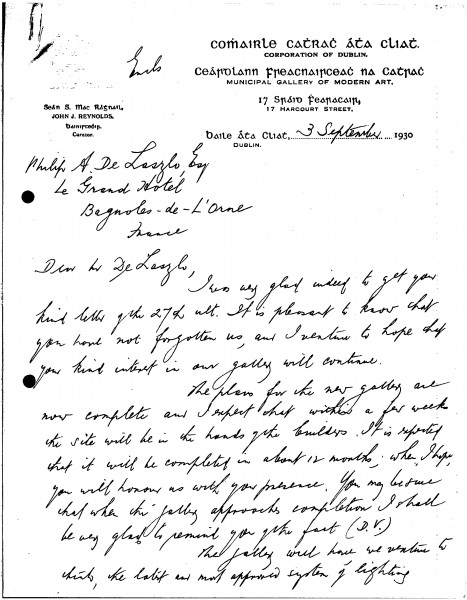 Encls
Comairle Catrac Áta Cliat.
CORPORATION OF DUBLIN.
Ceárdlann Freacnairceac na Catrac
MUNICIPAL GALLERY OF MODERN ART.
Seán S. Mac Rágnaill,
JOHN J. REYNOLDS,
Curator.
17 HARCOURT STREET.
Baile Áta Cliat, 3 September 1930
DUBLIN.
Philip A. De Laszlo, Esq
Le Grand Hotél
Bagnoles-de-L'Orne
France
Dear Mr De Laszlo,
I was very glad indeed to get your
kind letter of the 27th ult. It is pleasant to know that
you have not forgotten us, and I venture to hope that
your kind interest in our gallery will continue.
The plans for the new gallery are
now complete and I expect that within a few weeks
the site will be in the hands of the builders. It is reported
that it will be completed in about 12 months, when, I hope,
you will honour us with your presence. You may be sure
that when the gallery approaches completion I shall
be very glad to remind you of the fact (D.V.)
The gallery will have we venture to
think, the latest and most approved system of lighting